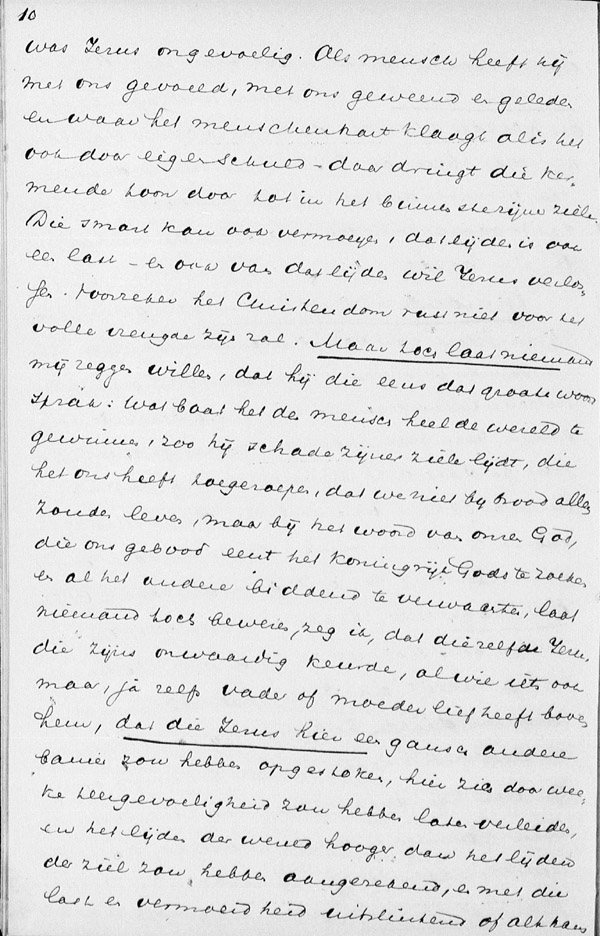 10
was Jezus ongevoelig. Als mensch heeft hij
met ons gevoeld, met ons geweend en geleden
en waar het menschenhart klaagt al is het
ook door eigen schuld – daar dringt die ker-
mende toon door tot in het binnenste zijner ziele.
Die smart kan ook vermoeyen, dat lijden is ook
een last – en ook van dat lijden wil Jezus verlos-
sen. Voorzeker het Christendom rust niet voor het
volle vreugde zijn zal. Maar toch laat niemand
mij zeggen willen, dat hij die eens dat groote woord
sprak: Wat baat het den mensch heel de wereld te
gewinnen, zoo hij schade zijner ziele lijdt, die
het ons heeft toegeroepen, dat we niet bij brood alleen
zouden leven, maar bij het woord van onzen God,
die ons gebood eerst het koningrijk Gods te zoeken
en al het andere biddend te verwachten, laat
niemand toch beweren, zeg ik, dat diezelfde Jezus,
die zijns onwaardig keurde, al wie iets ook
maar, ja zelfs vader of moeder lief heeft boven
hem, dat die Jezus hier een gansch andere
banier zou hebben opgestoken, hier zich door wee-
ke teergevoeligheid zou hebben laten verleiden,
en het lijden der wereld hooger dan het lijden
der ziel zou hebben aangerekend, en met die
last en vermoeidheid uitsluitend of althans